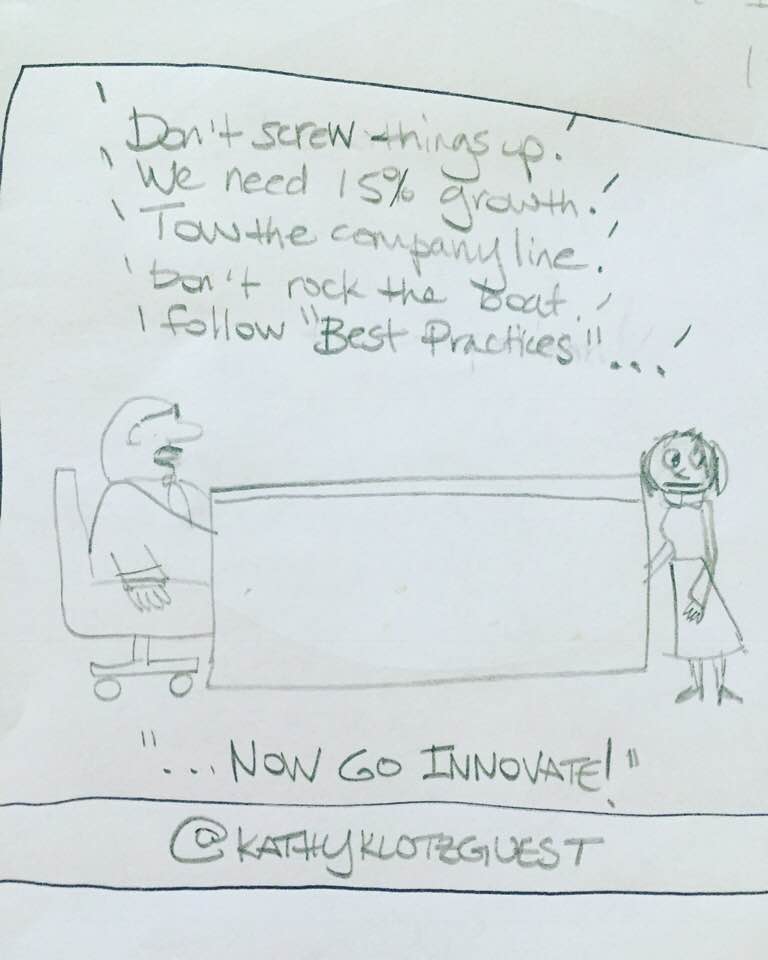 'Don't screw things up.'
'We need 15% growth.'
'Tow the company line.'
'Don't rock the boat.'
'Follow "Best Practices"...'
"... NOW GO INNOVATE!"
@KATHYKLOTZGUEST